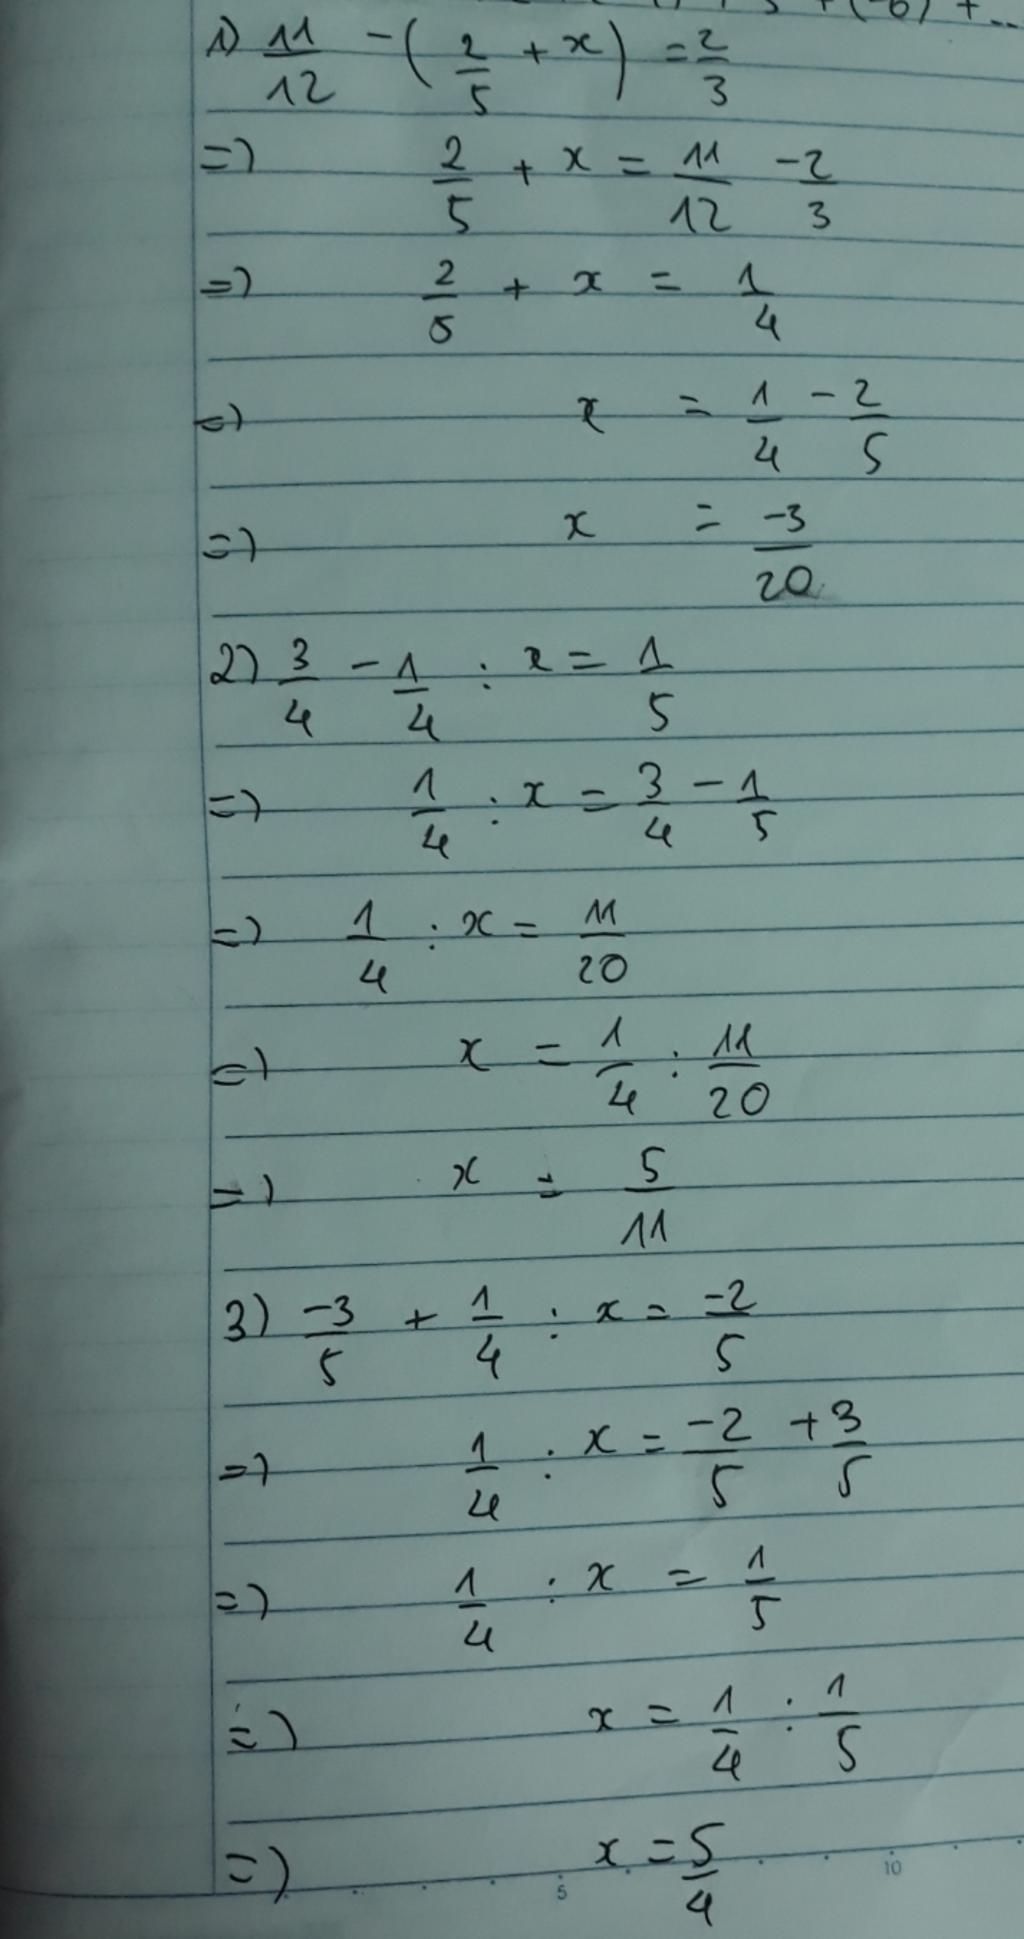 +(-6)+...
1) 11/12 - (2/5 + x) = 2/3
=> 2/5 + x = 11/12 - 2/3
=> 2/5 + x = 1/4
=> x = 1/4 - 2/5
=> x = -3/20
2) 3/4 - 1/4 : x = 1/5
=> 1/4 : x = 3/4 - 1/5
=> 1/4 : x = 11/20
=> x = 1/4 : 11/20
=> x = 5/11
3) -3/5 + 1/4 : x = -2/5
=> 1/4 : x = -2/5 + 3/5
=> 1/4 : x = 1/5
=> x = 1/4 : 1/5
=> x = 5/4
5 10